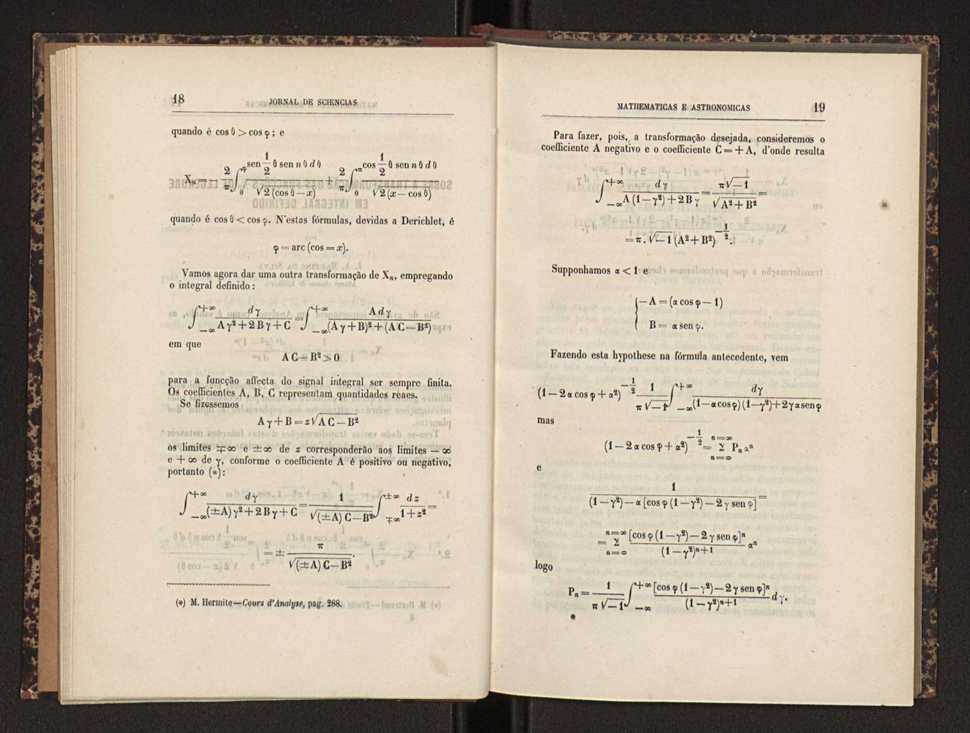 18 JORNAL DE SCIENCIAS
quando é cos θ > cos φ; e
Xₙ = — 2/π ∫₀^φ (sen 1/2 θ sen n θ d θ)/√2 (cos θ — x) + 2/π ∫₀^π (cos 1/2 θ sen n θ d θ)/√2 (x — cos θ)
quando é cos θ < cos φ. N'estas fórmulas, devidas a Derichlet, é
φ = arc (cos = x).
Vamos agora dar uma outra transformação de Xₙ, empregando
o integral definido:
∫₋∞^+∞ d γ/(A γ² + 2 B γ + C) = ∫₋∞^+∞ A d γ/((A γ + B)² + (A C — B²)
em que
A C — B² > 0
para a funcção affecta do signal integral ser sempre finita.
Os coefficientes A, B, C representam quantidades reaes.
Se fizessemos
A γ + B = z √A C — B²
os limites ∓ ∞ e ± ∞ de z corresponderão aos limites — ∞
e + ∞ de γ, conforme o coefficiente A é positivo ou negativo,
portanto (*):
∫₋∞^+∞ d γ/((±A) γ² + 2 B γ + C) = 1/√(±A) C — B² ∫∓∞^±∞ d z/(1 + z²) =
= ± π/√(±A) C — B².
(*) M. Hermite — Cours d'Analyse, pag. 288.
MATHEMATICAS E ASTRONOMICAS 19
Para fazer, pois, a transformação desejada, consideremos o
coefficiente A negativo e o coefficiente C = + A, d'onde resulta
∫₋∞^+∞ d γ/(A (1 — γ²) + 2 B γ) = π √—1/√A² + B² =
= π . √—1 (A² + B²)^—1/2.
Supponhamos α < 1 e
{ —A = (α cos φ — 1)
B = α sen φ.
Fazendo esta hypothese na fórmula antecedente, vem
(1 — 2 α cos φ + α²)^—1/2 1/π √—1 ∫₋∞^+∞ d γ/((1 — α cos φ) (1 — γ²) + 2 γ α sen φ
mas
(1 — 2 α cos φ + α²)^—1/2 = Σ Pₙ αⁿ
e
1/((1 — γ²) — α [cos φ (1 — γ²) — 2 γ sen φ] =
= Σ [cos φ (1 — γ²) — 2 γ sen φ]ⁿ/(1 — γ²)ⁿ⁺¹ αⁿ
logo
Pₙ = 1/π √—1 ∫₋∞^+∞ [cos φ (1 — γ²) — 2 γ sen φ]ⁿ/(1 — γ²)ⁿ⁺¹ d γ.
*